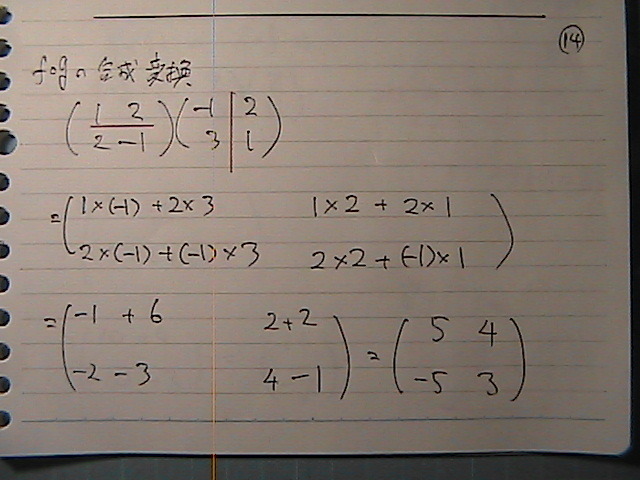 ⑭
f∘gの合成変換
( 1 2 ) ( -1 | 2 )
( 2 -1 ) ( 3 | 1 )
= ( 1×(-1) + 2×3 1×2 + 2×1 )
( 2×(-1) + (-1)×3 2×2 + (-1)×1 )
= ( -1 + 6 2+2 ) = ( 5 4 )
( -2 - 3 4 - 1 ) ( -5 3 )